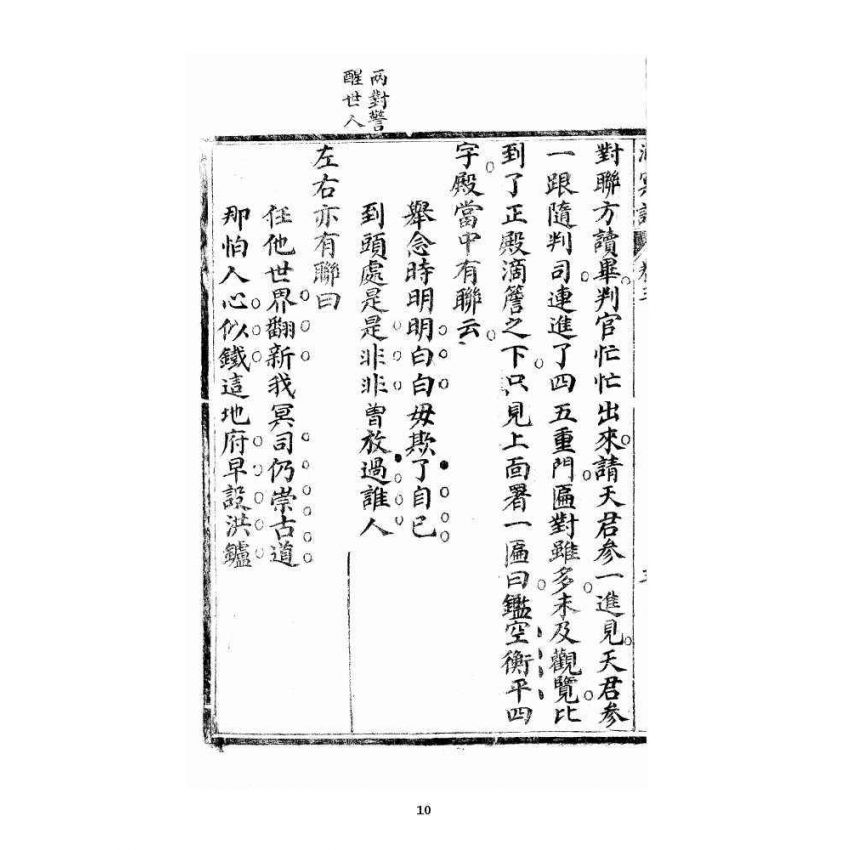 對聯方讀畢判官忙忙出來請天君參一進見天君參
一跟隨判司連進了四五重門匾對雖多未及觀覽比
到了正殿滴簷之下只見上面署一匾曰鑑空衡平四
字殿當中有聯云
舉念時明明白白毋欺了自己
到頭處是是非非曾放過誰人
左右亦有聯曰
任他世界翻新我冥司仍崇古道
那怕人心似鐵這地府早設洪鑪
兩對警
醒世人
10